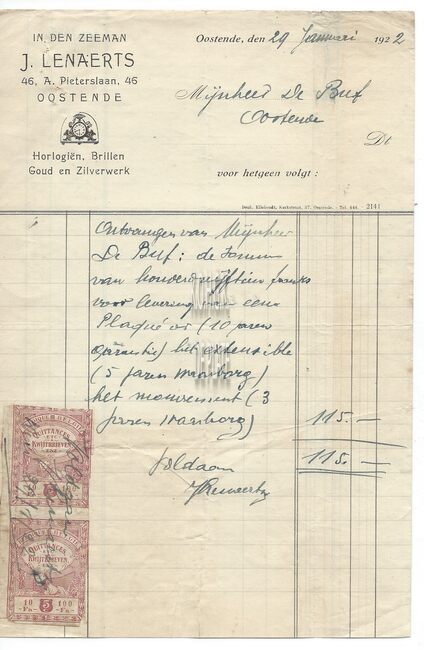 IN DEN ZEEMAN
J. LENAERTS
46, A. Pieterslaan, 46
OOSTENDE
Horlogiën, Brillen
Goud en Zilverwerk
Oostende, den 29 Januari 1922
Mijnheer De Buf
Oostende
Dt
voor hetgeen volgt :
Oostende. - Tel. 644. 2141
Ontvangen van Mijnheer
De Buf : de somme
van honderdvijftien franks
voor levering van een
Plaqué or (10 jaren
garantie) het extensible
(5 jaren waarborg)
het mouvement (3
jaren waarborg) 115.—
115.—
Voldaan
JLenaerts
QUITTANCES
ETC
KWIJTBRIEVEN
ENZ
5
QUITTANCES
KWIJTBRIEVEN
ENZ
10 5 100
Fr. Fr.